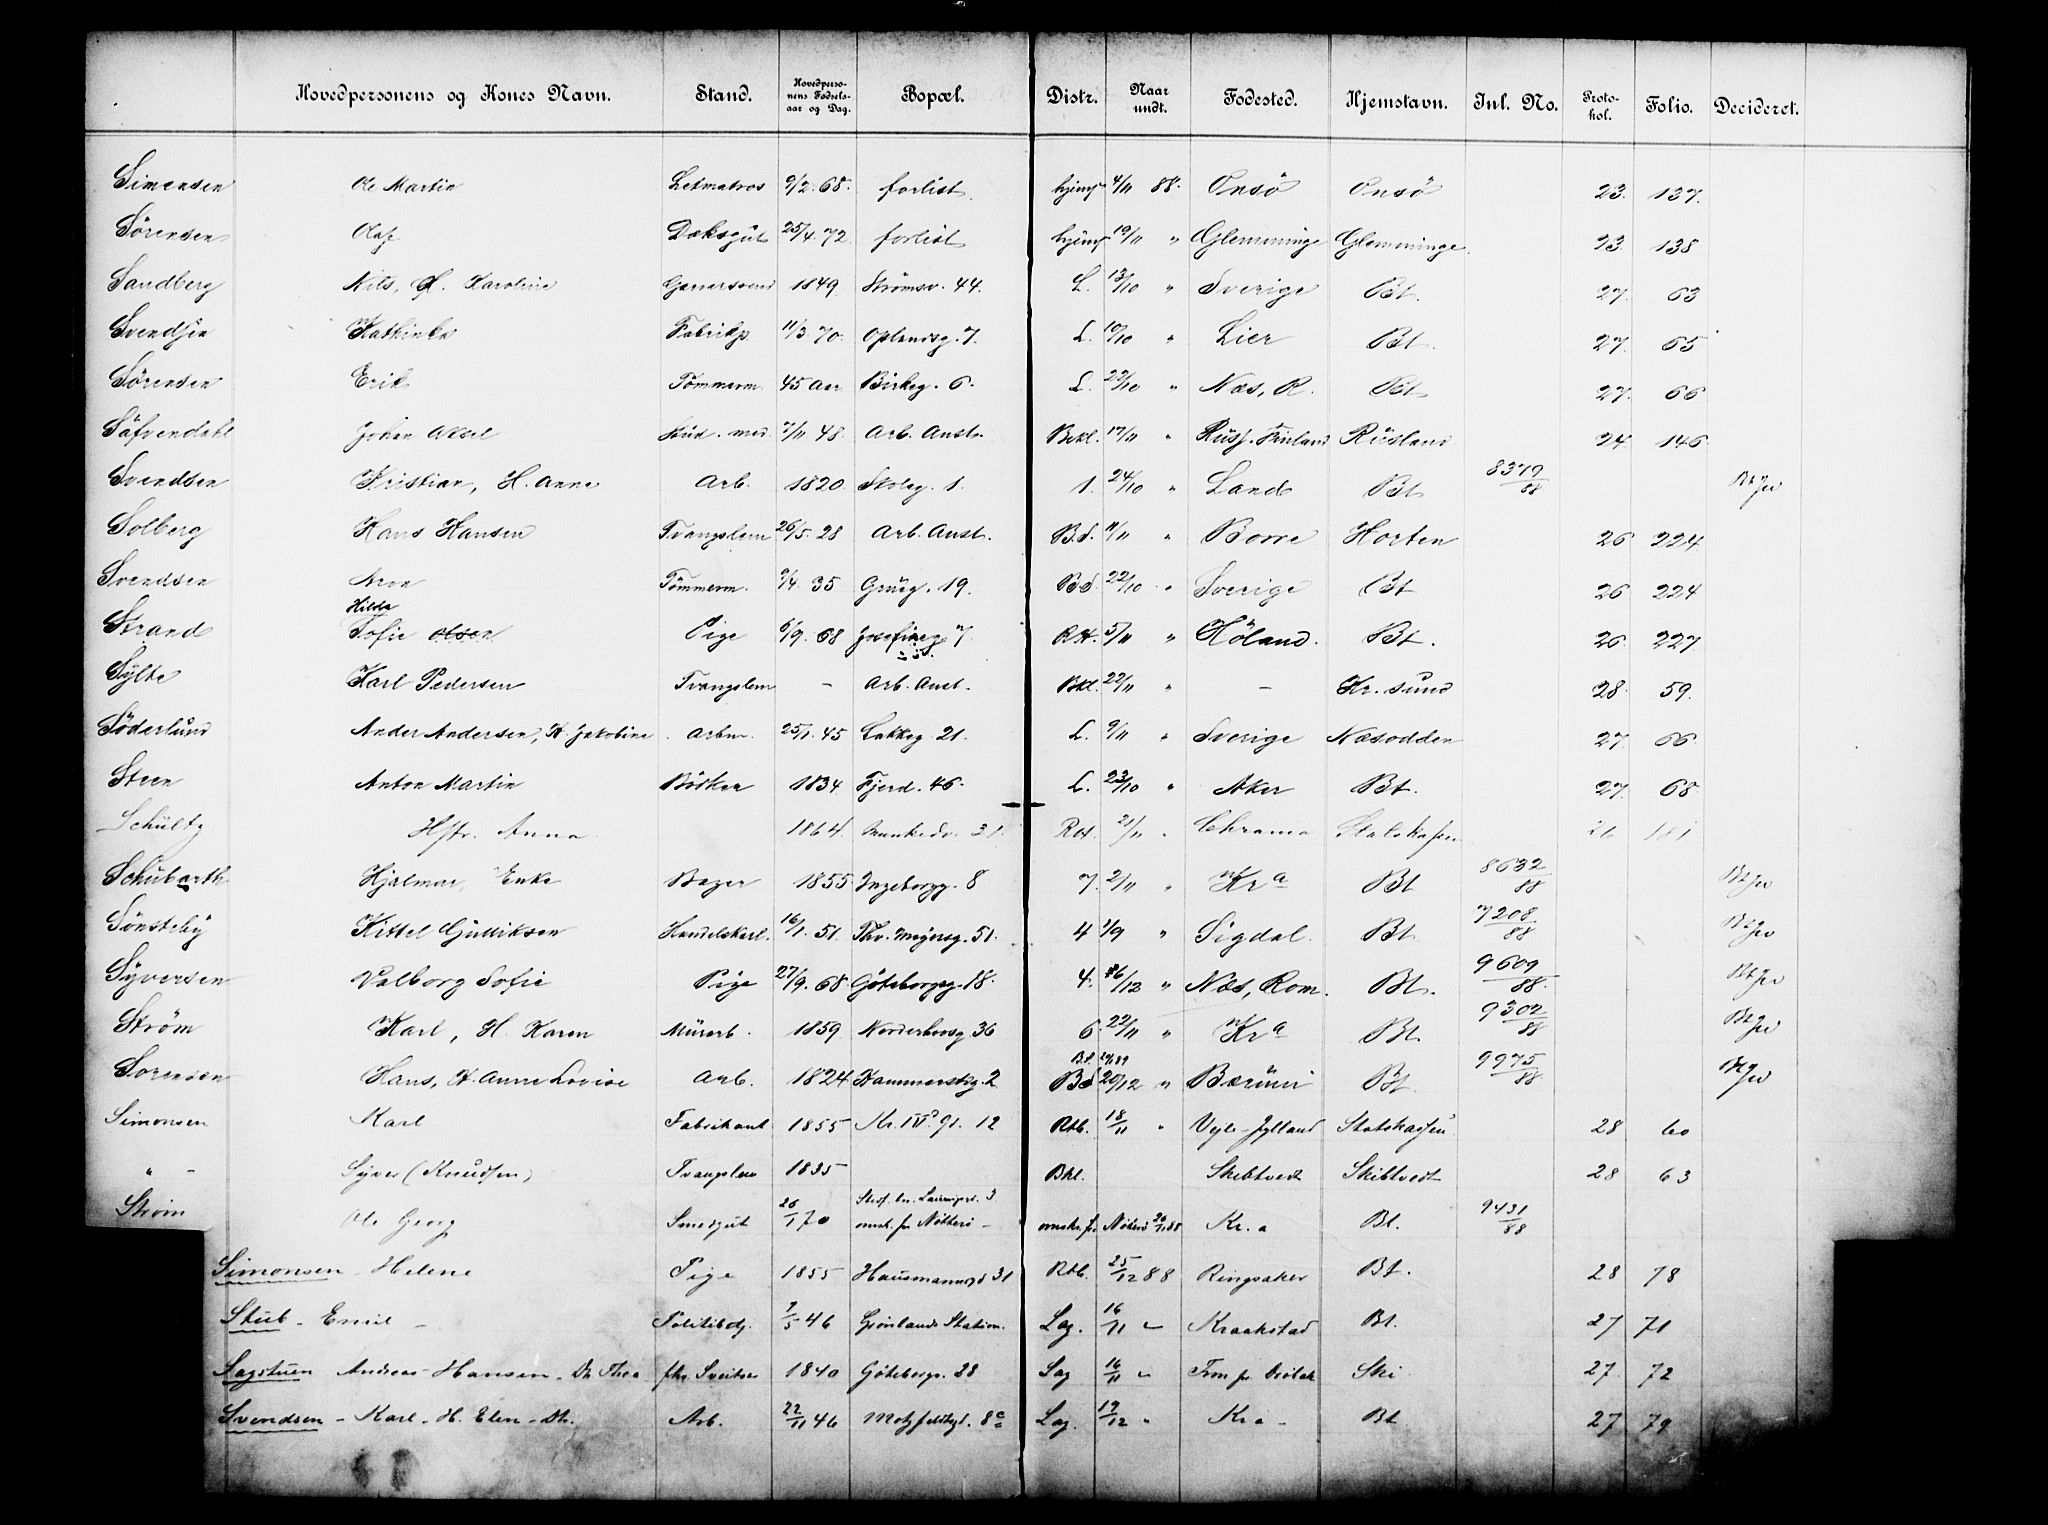 Hovedpersonens og Kones Navn. Stand. Hovedpersonens Fødselsaar og Dag. Bopæl. Distr. Naar undt. Fødested. Hjemstavn. Inl. No. Protokol. Folio. Decideret.
Simensen Ole Martin Letmatros 9/2. 68. forlist hjemf 4/11 88. Onsö Onsö 23. 137.
Sörensen Olaf Dæksgut 25/4. 72 forlist hjemf 19/11 " Glemminge Glemminge 23. 138
Sandberg Nils, H. Karoline Garversvend 1849 Strömsv. 44. L. 13/10 " Sverige Bt. 27. 63
Svendsen Kathinka Fabrikp. 11/3. 70. Oplandsg. 7. L. 10/10 " Lier Bt. 27. 65
Sörensen Erik Tömmerm. 45 Aar Birkeg. 6. L. 22/10 " Næs, R. Bt 27. 66
Säfvendahl Johan Aksel Stud. med. 7/11 48. Arb. Anst. Bekl. 17/11 " Russ. Finland Rusland 24 146
Svendsen Kristian, H. Anne Arb. 1820 Skoleg. 1. 1. 24/10 " Land Bt 8379/88
Solberg Hans Hansen Tvangslem 26/5. 28 Arb. Anst. B.d. 11/11 " Borre Horten 26 224
Svendsen Aron Tömmerm. 9/4. 35 Grüg. 19. Bd. 22/10 " Sverige Bt 26 224
Hilda
Strand Sofie Olsen Pige 6/9. 68 Josefineg 7 Rtt. 5/11 " Höland. Bt. 26. 227
Sylte Karl Pedersen Tvangslem - Arb. Anst. Bkl. 22/11 " - Kr. sund 28. 59.
Söderlund Ander Andersen, H. Jakobine Arbm. 25/1. 45 Lakkeg 21. L. 9/11 " Sverige Næsodden 27. 66.
Steen Anton Martin Bödker 1834 Fjerd. 46. L. 23/10 " Aker Bt. 27. 68.
Schültz Hstr. Anna 1864. Munkedv. 31. Rtt. 21/11 " Chrania Statskassen 26 181
Schubarth Hjalmar, Enke Bager 1855 Ingeborgg. 8 7. 2/11 " Kra Bt 8632/88
Sönsteby Kittel Gulliksen Handelskarl. 16/1. 51. Thv. Meyersg. 51. 4 1/9 " Sigdal. Bt. 7208/88
Syversen Valborg Sofie Pige 27/9. 68 Göteborgsg. 18. 4. 6/12 " Næs, Rom. Bt. 9609/88.
Ström Karl, H. Karen Murarb. 1859 Norderhovsg 36 6. 22/11 " Kra Bt. 9302/88
Sorensen Hans, H. Anne Lovise Arb. 1824 Hammersbg. 2 Bd 20/12 " Bærum Bt. 9975/88
Simonsen Karl Fabrikant 1855 Kr. IV's gt. 12 Rtb. 18/11 " Vejle-Jylland Statskassen 28 60
" - Syver (Knudsen) Tvangslem 1835 Bkl. Skibtvedt Skibtvedt 28 63
Ström Ole Georg Smedgut 26/1 70 omsk. fr. Nötterö - omsk. fr. Nöterö 26/11 88 Kr.a Bt. 9431/88
Simonsen Helene Pige 1855 Hausmannsgd 31 Rtb. 25/12 88 Ringsaker Bt. 28 78
Stub - Emil - Politibetj. 7/5 46 Grönlands Station. Lag. 16/11 " Kraakstad Bt. 27 71
Sagstuen Andreas Hansen - H. Thea fhv. Sveitser 1840 Göteborgs. 28 Lag 16/11 " Ski 27. 72
Svendsen - Karl - H. Elen - Arb. 22/11 46 Motzfeldtsgt. 8c Lag. 19/12 " Kra - Bt 27 79